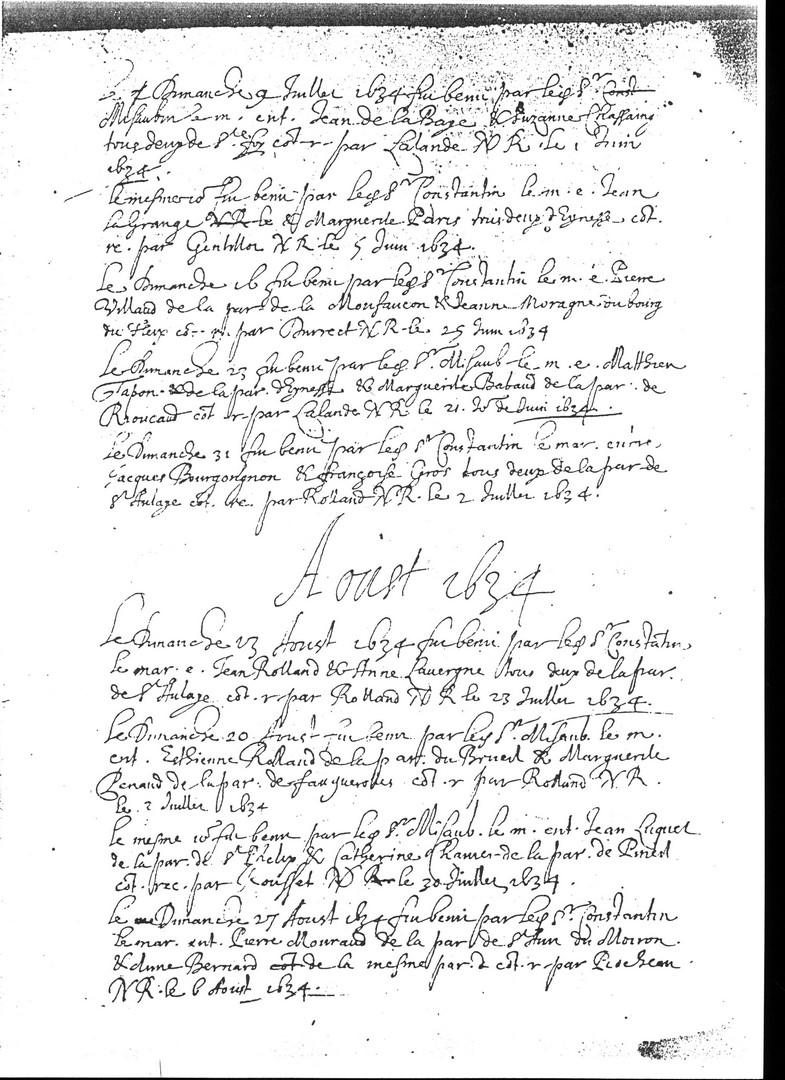 Le Dimanche 9 Juillet 1634 fut beni par led Sr
Misaubin le m. ent. Jean de la Baze & Suzanne Chassaing
tous deux de Ste foy cot. r. par Lalande N R. le 1 Juin
1634.
Le mesme io fut beni par led Sr Constantin le m. e. Jean
la Grange & Marguerite Paris tous deux d'Eynesse cot.
re. par Gentillot N R le 5 Juin 1634.
Le Dimanche 16 fut beni par led Sr Constantin le m. e. Pierre
Villaud de la par. de la Monfaucon & Jeanne Moragne du bourg
du Fleix cot. r. par Burrect N R. le. 25 Juin 1634
Le Dimanche 23 fut beni par led Sr. Misaub. le m. e. Matthieu
Tapon de la par. d'Eynesse & Marguerite Babaud de la par. de
Rioucaud cot. r. par Lalande N R. le 21. de Juin 1634.
Le Dimanche 31 fut beni par led Sr Constantin le mar. entre
Jacques Bourgongnon & françoise Gros tous deux de la par. de
St Aulaye cot. re. par Rolland N R. le 2 Juillet 1634.
Aoust 1634
Le Dimanche 13 Aoust 1634 fut beni par led Sr Constantin
le mar. e. Jean Rolland & Anne Lauvergne tous deux de la par.
de St Aulaye cot. r. par Rolland N R le 23 Juillet 1634.
Le Dimanche 20 Aoust fut beni par led Sr. Misaub. le m.
ent. Esthienne Rolland de la par. du Brueil & Marguerite
Renaud de la par. de fauguerolles cot. r par Rolland N R.
le 2 Juillet 1634
Le mesme io fut beni par led Sr. Misaub. le m. ent. Jean Luquet
de la par. de St & Catherine de la par. de Pineil
cot. rec. par Cousset N R le 30 Juillet 1634.
Le Dimanche 27 Aoust 1634 fut beni par led Sr. Constantin
le mar. ent. Pierre Mouraud de la par de St Aun du Moiron.
& Anne Bernard de la mesme par. cot. r. par
N R. le 6 Aoust 1634.